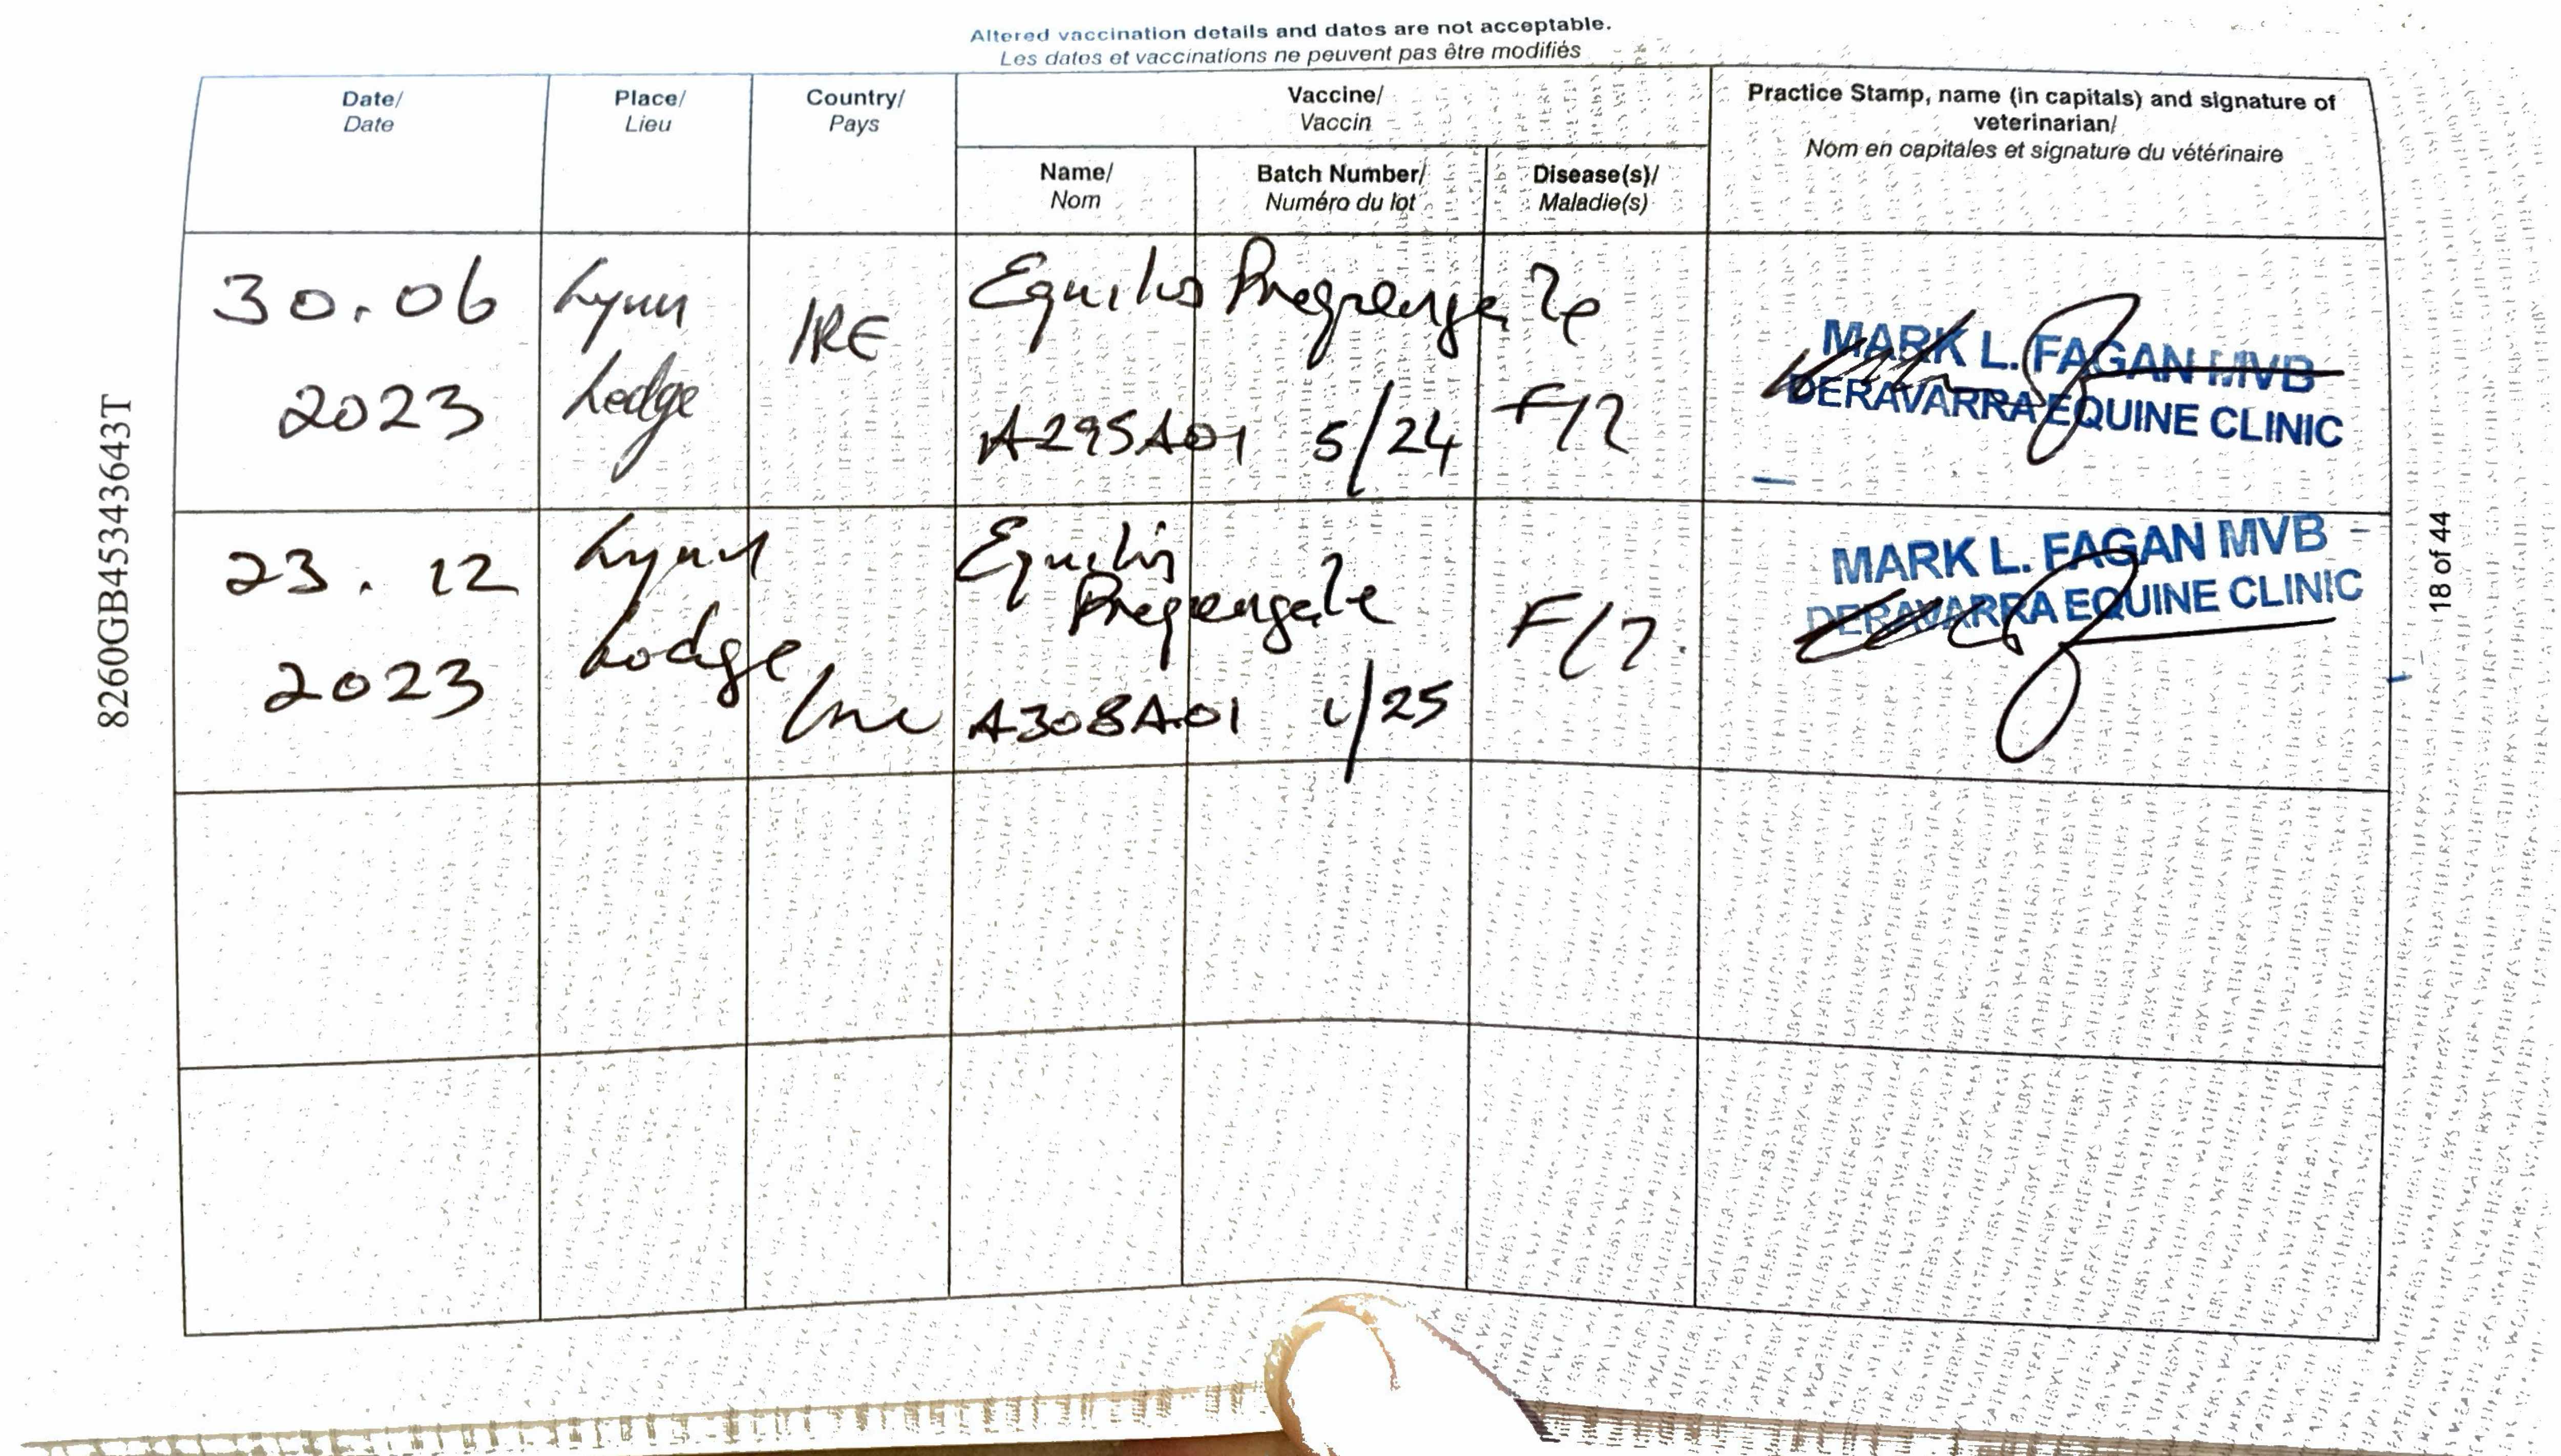 Altered vaccination details and dates are not acceptable.
Les dates et vaccinations ne peuvent pas être modifiés
Date/
Date
Place/
Lieu
Country/
Pays
Vaccine/
Vaccin
Name/
Nom
Batch Number/
Numéro du lot
Disease(s)/
Maladie(s)
Practice Stamp, name (in capitals) and signature of
veterinarian/
Nom en capitales et signature du vétérinaire
30.06
2023
Lynn
Lodge
IRE
Equilis Prequenza Te
A295A01 5/24
F/T
MARK L. FAGAN MVB
DERAVARRA EQUINE CLINIC
23.12
2023
Lynn
Lodge
Ire
Equilis
Prequenza Te
A308A01 /25
F/T
MARK L. FAGAN MVB
DERAVARRA EQUINE CLINIC
8260GB453436437T
18 of 44